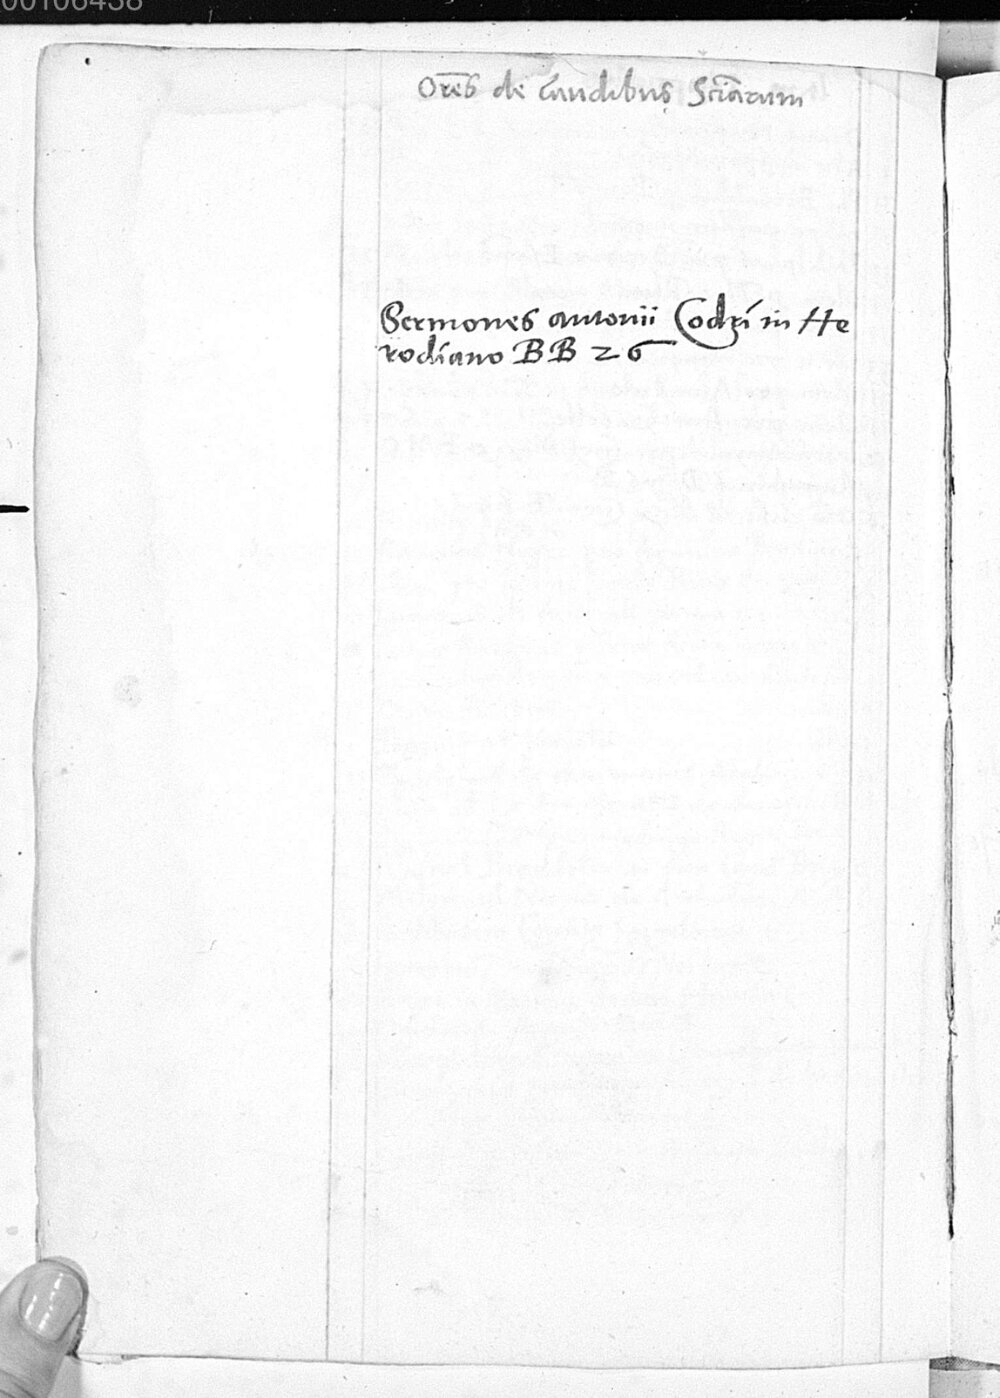 00106438
Or̄es de laudibus Sciārum
Sermones antonii Codri in He
rodiano BB 26